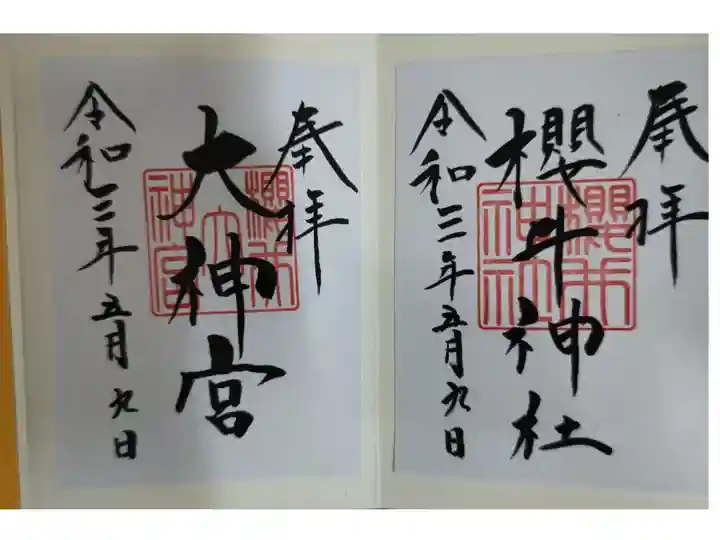 奉拝
櫻木神社
令和三年五月九日
奉拝
大神宮
令和三年五月九日